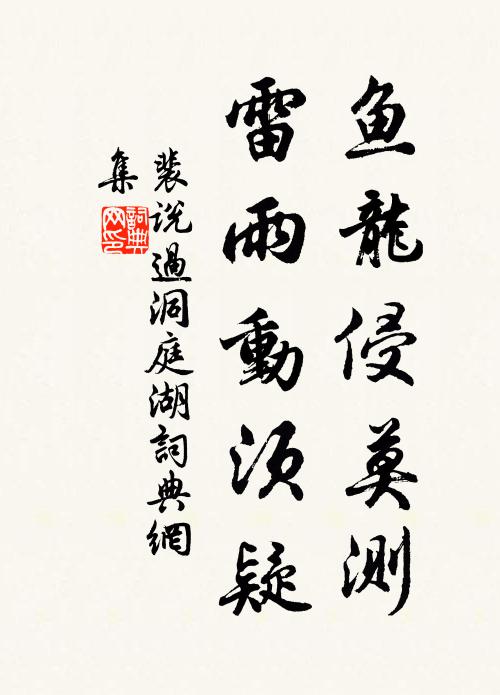 鱼龍侵莫測
雷雨動须疑
裴说過洞庭湖詞典網
集
詞典
网印